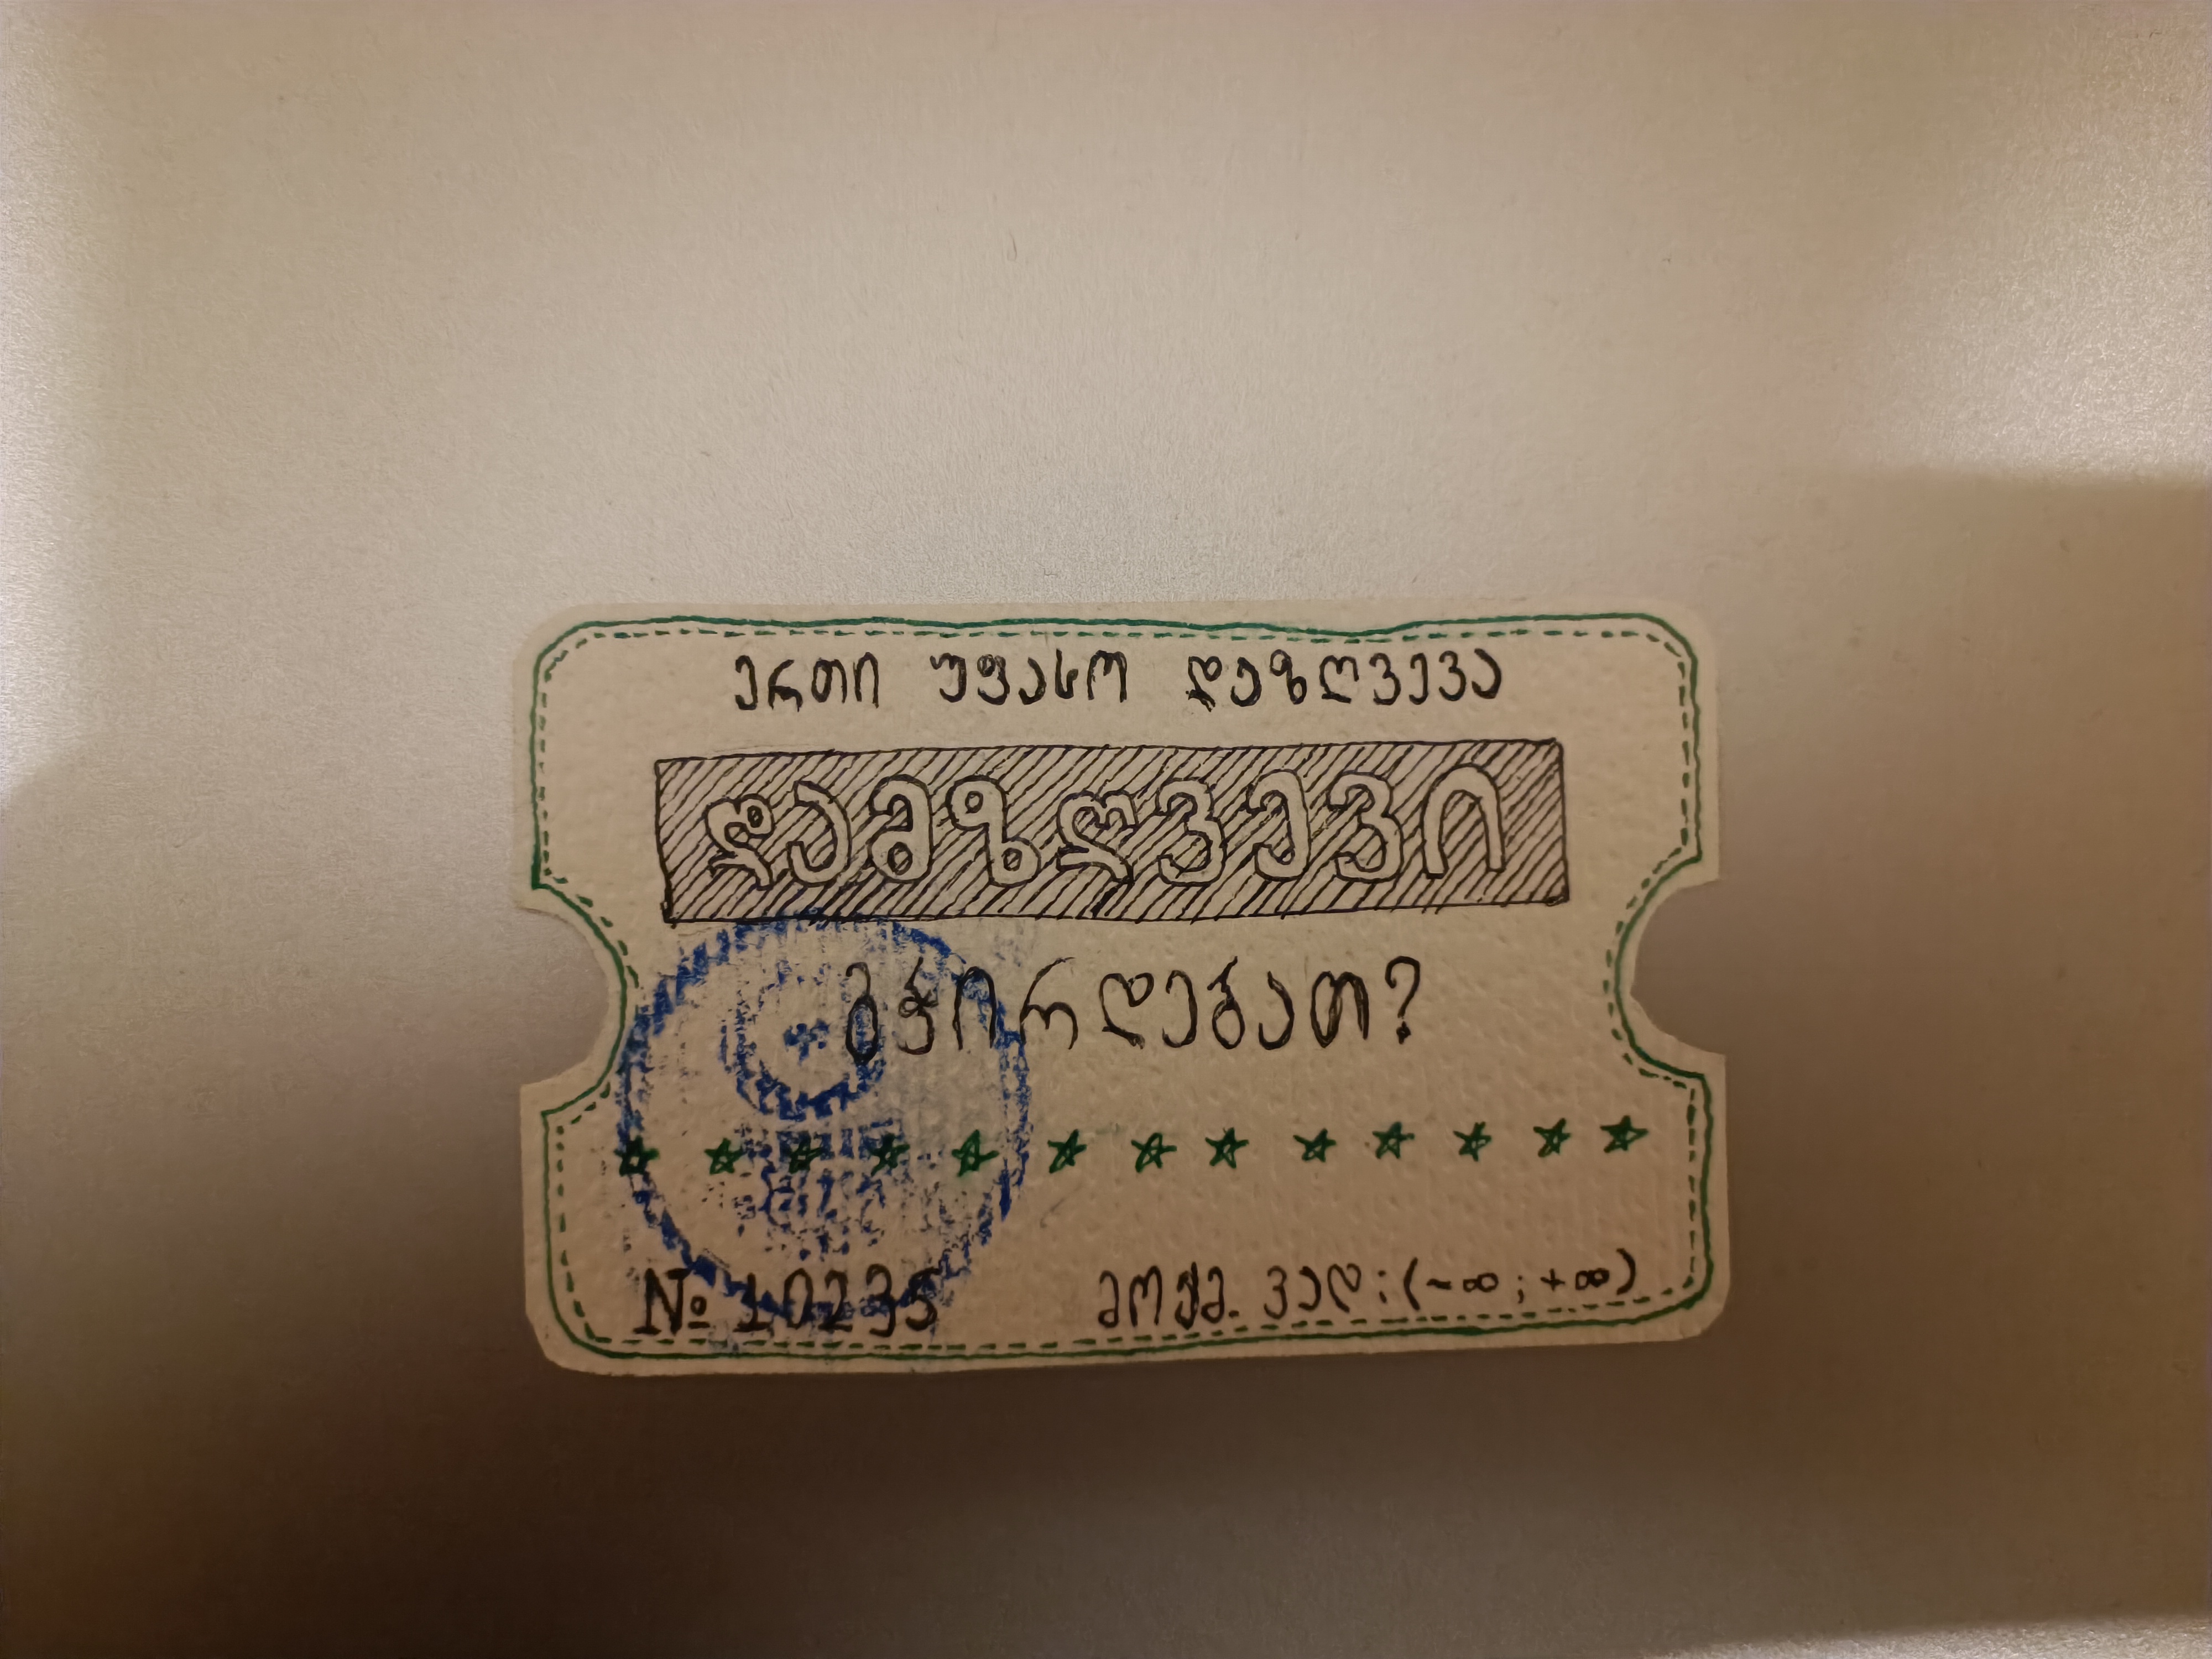 ერთი უფასო დაზღვევა
დამზღვევი
გჭირდებათ?
№ 10235
მოქმ. ვად: (-∞ ; +∞)